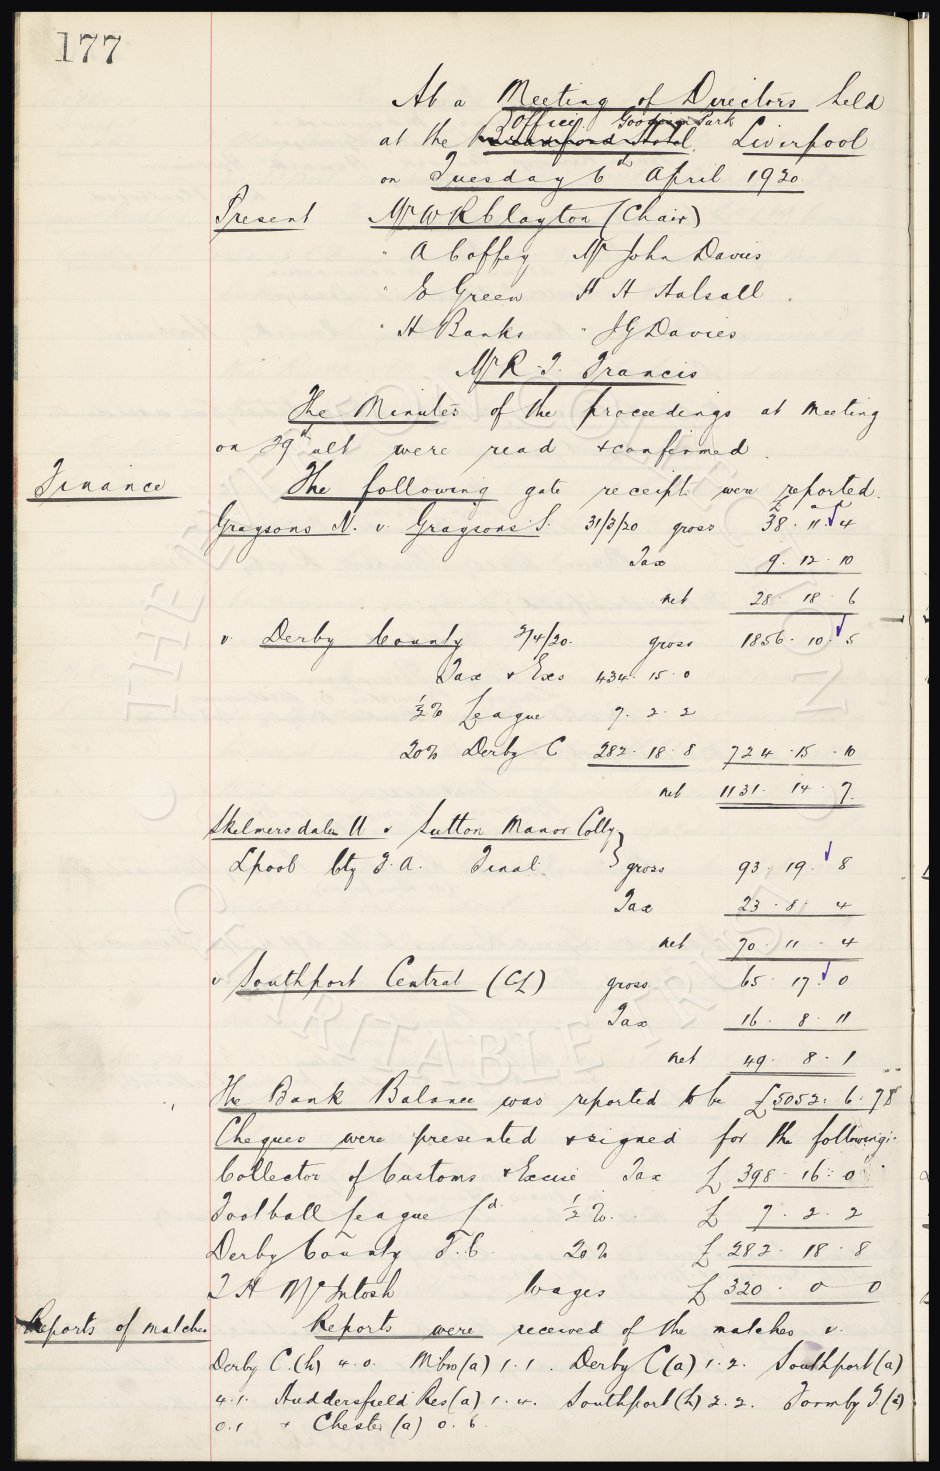 177
At a Meeting of Directors held
Office Goodison Park
at the Bradford Hotel, Liverpool
on Tuesday 6th April 1920.
Present Mr W R Clayton (Chair)
" A Coffey Mr John Davies
" E Green " H Halsall.
" H Banks " J G Davies
Mr R. T. Francis
The Minutes of the proceedings at meeting
on 29th ult were read & confirmed.
Finance The following gate receipts were reported.
Graysons N. v. Graysons S. 31/3/20 gross £38. 11. 4
Tax 9. 12. 10
net 28. 18. 6
v. Derby County 2/4/20. gross 1856. 10. 5
Tax & Exs 434. 15. 0
½% League 7. 2. 2
20% Derby C 282. 18. 8 724. 15. 10
net 1131. 14. 7.
Skelmersdale U v Sutton Manor Colly
Lpool Cty F.A. Final. } gross 93. 19. 8
Tax 23. 8. 4
net 70. 11. 4
v Southport Central (CL) gross 65. 17. 0
Tax 16. 8. 11
net 49. 8. 1
The Bank Balance was reported to be £5052. 6. 7
Cheques were presented & signed for the following:-
Collector of Customs & Excise Tax £ 398. 16. 0
Football League Ld. ½%. £ 7. 2. 2
Derby County F.C. 20% £ 282. 18. 8
T H McIntosh Wages £ 320. 0 0
Reports of matches Reports were received of the matches v.
Derby C. (h) 4. 0. Mbro (a) 1. 1. Derby C (a) 1. 2. Southport (a)
4. 1. Huddersfield Res (a) 1. 4. Southport (h) 2. 2. Formby F. (a)
0. 1 & Chester (a) 0. 6.
THE EVERTON COLLECTION
CHARITABLE TRUST